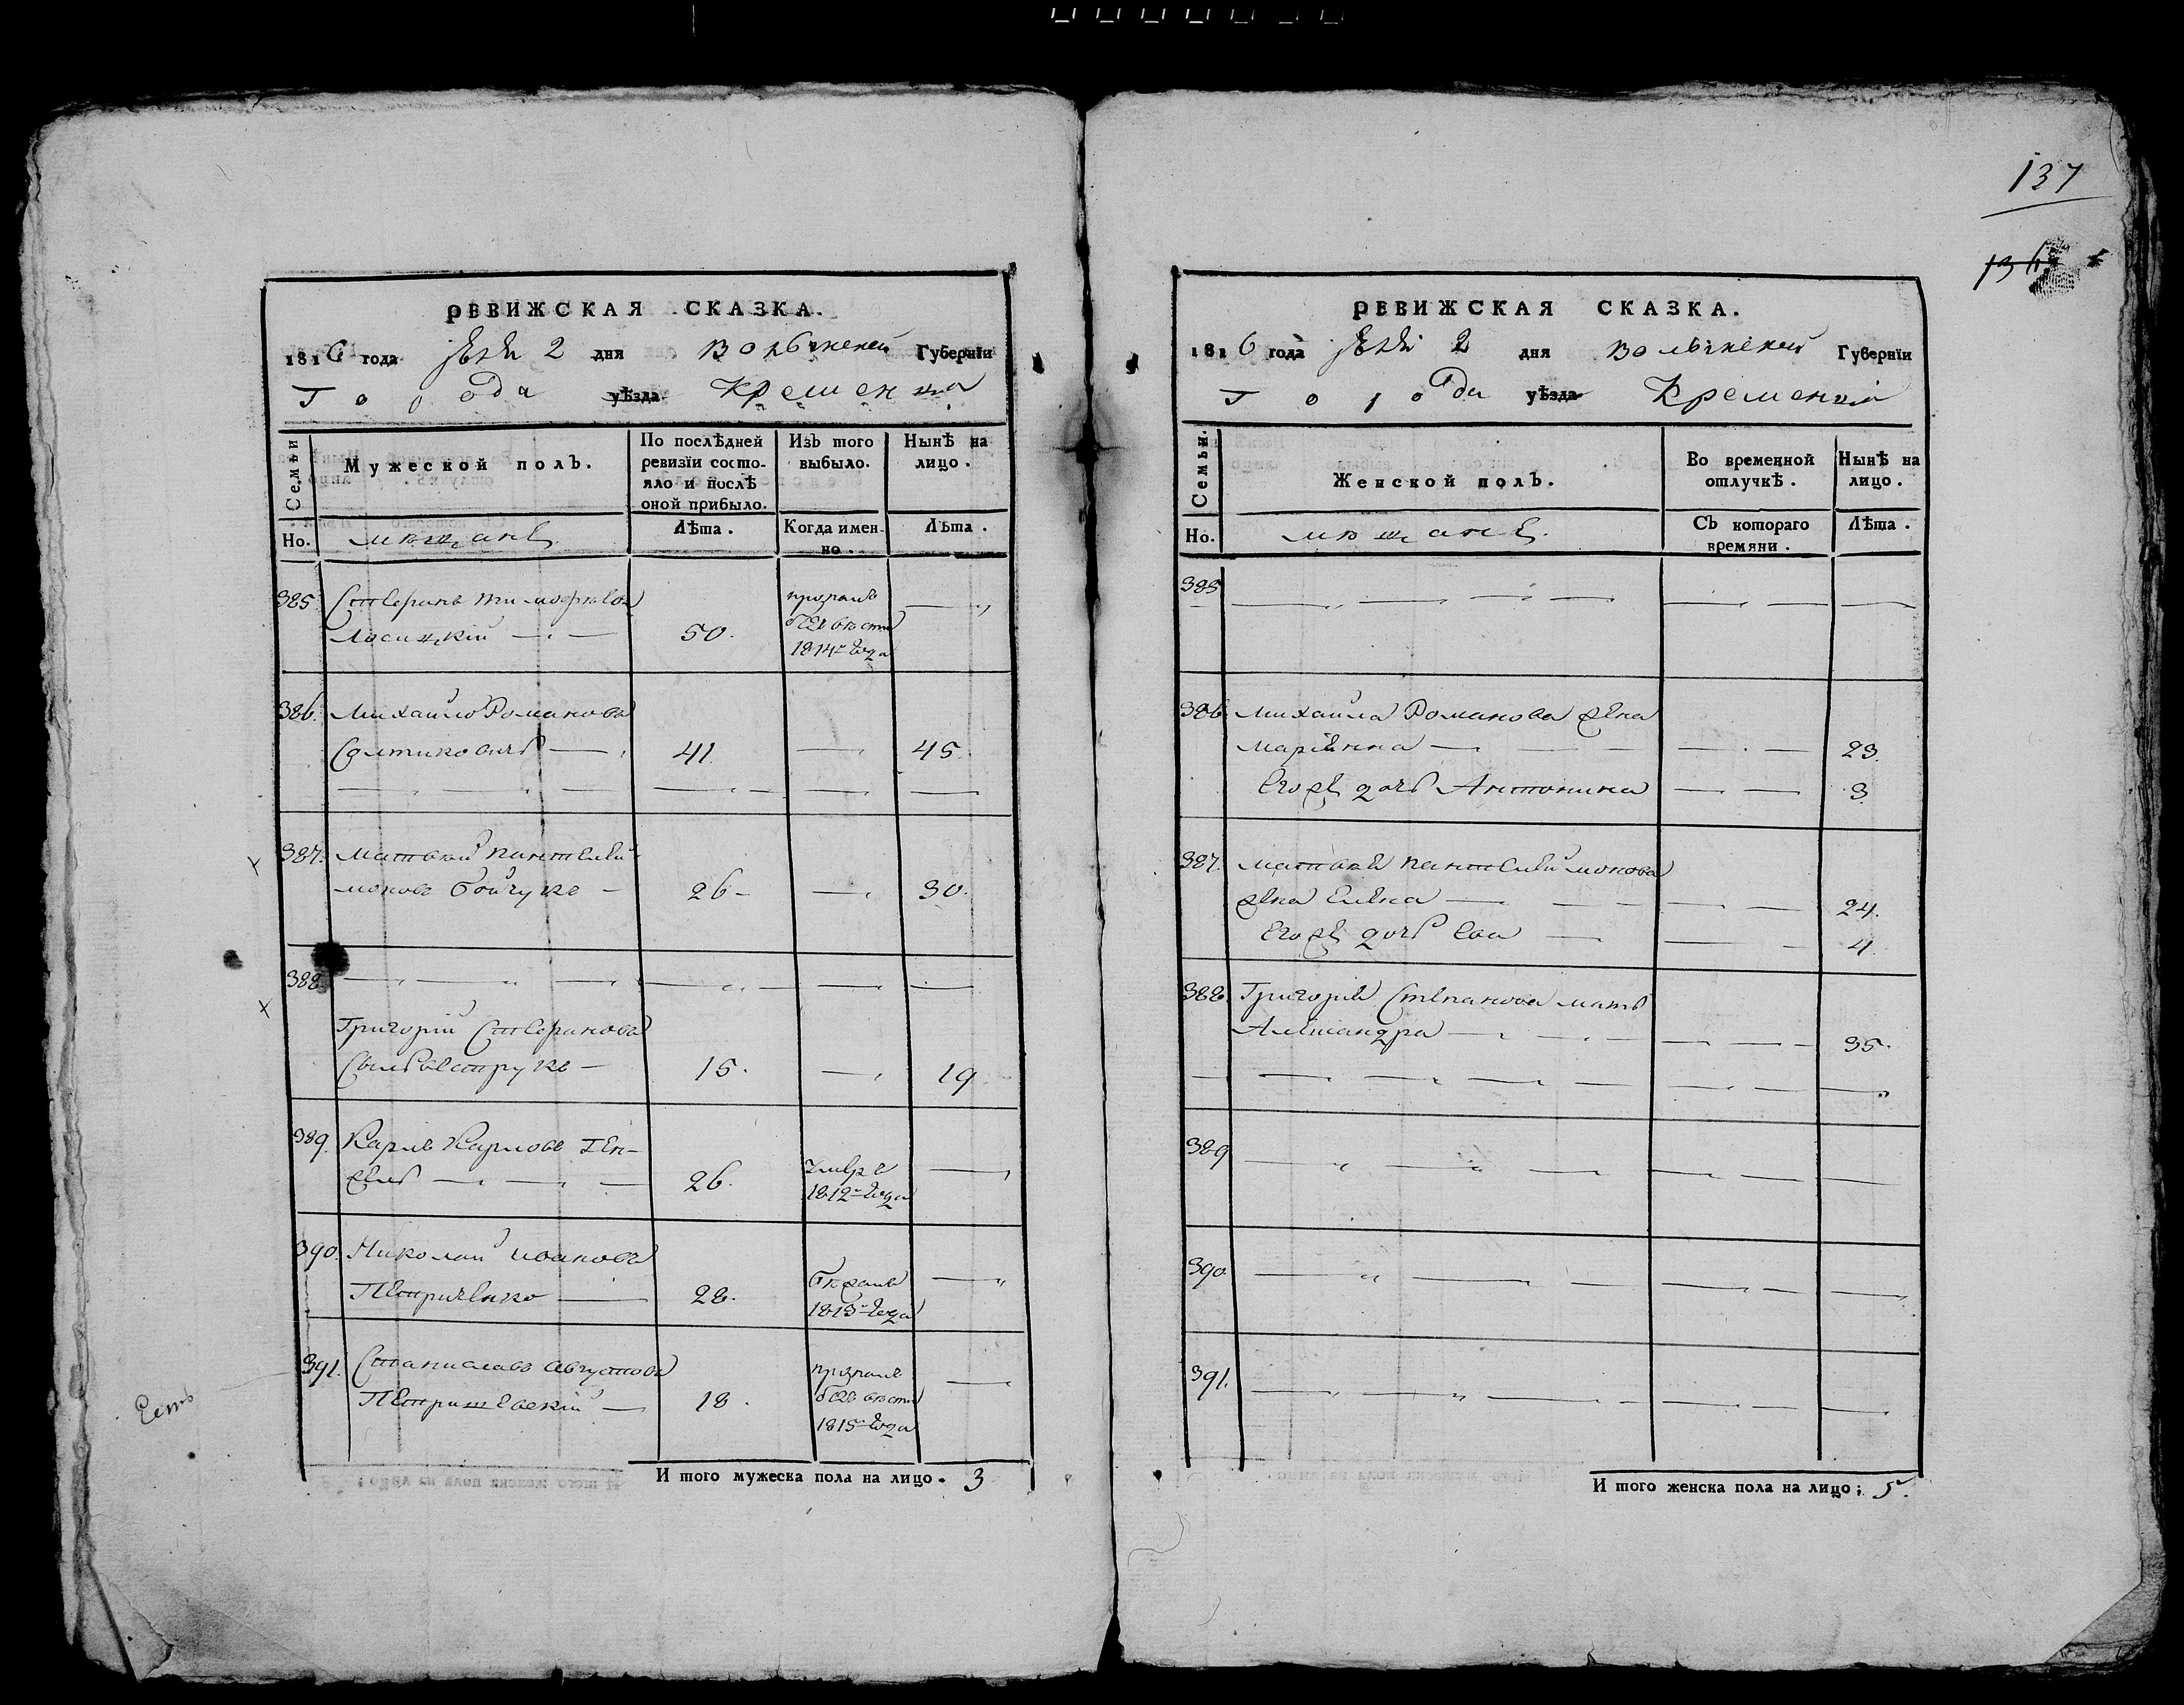 137
136
РЕВИЖСКАЯ СКАЗКА.
1816 года 2 дня Волынской Губерніи
Города уѣзда Кременца
Семьи
Мужеской полъ.
По послѣдней ревизіи состояло и послѣ оной прибыло.
Изъ того выбыло.
Нынѣ на лицо.
Но.
мѣщане
Лѣта.
Когда именно.
Лѣта.
385
Лосицкій — 50.
1814го года
386. Михайло Романовъ
41. — 45.
387. Матвей Пантелей-
моновъ Бойчукъ — 26 — 30.
388.
Григорій
Сильвеструкъ — 15. — 19
389. Карлъ Карловъ Ген-
26. умеръ
1812го года
390. Николай Ивановъ
Петриченко — 28. бѣжалъ
1813го года
391. Станиславъ Августовъ
18. безъ вѣсти
1815го года
Есть
И того мужеска пола на лицо. 3
РЕВИЖСКАЯ СКАЗКА.
1816 года 2 дня Волынской Губерніи
Города уѣзда Кременца
Семьи.
Женской полъ.
Во временной отлучкѣ.
Нынѣ на лицо.
Но.
мѣщане.
Съ котораго времяни.
Лѣта.
385
386. Михайла Романова жена
Маріянна — 23.
Его же дочь Антонина — 3
387. Матвея Пантелеймонова
жена Елена — 24.
Его же дочь Ева — 4
388. Григорія Степанова мать
Александра — 35.
389
390
391.
И того женска пола на лицо; 5.